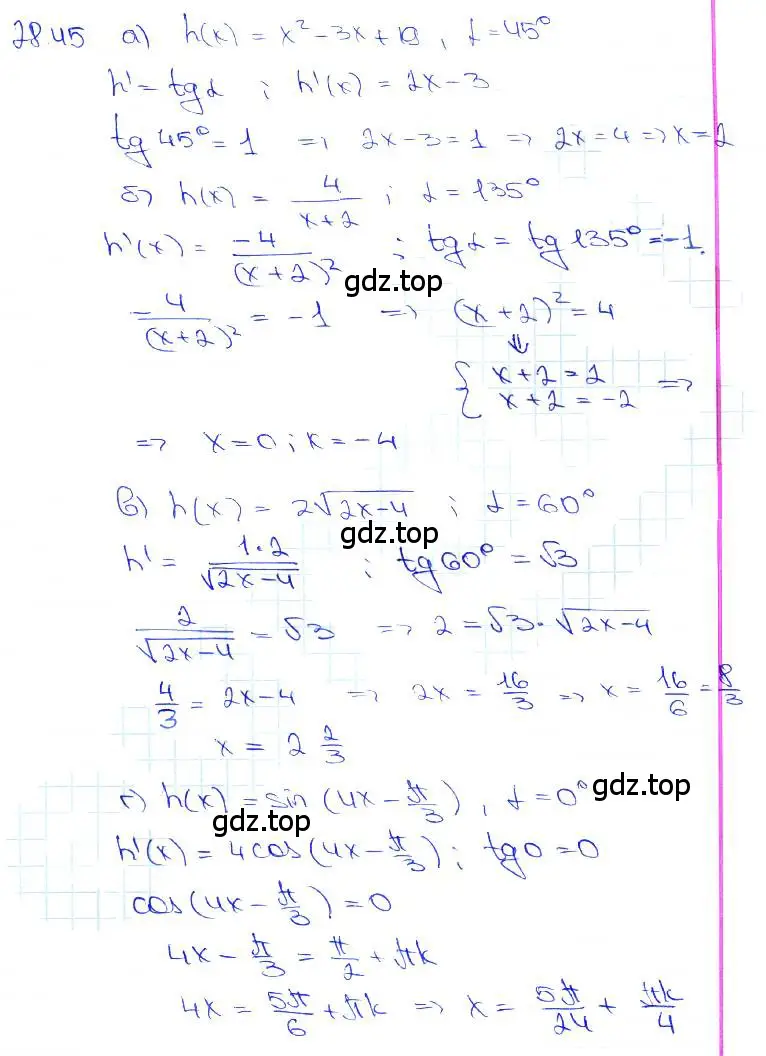 28.45 а) h(x) = x² – 3x + 19, α = 45°
h' = tg α ; h'(x) = 2x – 3
tg 45° = 1 => 2x – 3 = 1 => 2x = 4 => x = 2
б) h(x) = 4/(x+2) ; α = 135°
h'(x) = –4/(x+2)² ; tg α = tg 135° = –1.
gdz.top
– 4/(x+2)² = –1 => (x+2)² = 4
⇓
{ x+2 = 2 =>
x+2 = –2
=> x = 0 ; x = –4
в) h(x) = 2√(2x–4) ; α = 60°
gdz.top
h' = 1·2/√(2x–4) ; tg 60° = √3
2/√(2x–4) = √3 => 2 = √3 · √(2x–4)
4/3 = 2x–4 => 2x = 16/3 => x = 16/6 = 8/3
x = 2 2/3
г) h(x) = sin (4x – π/3), α = 0°
gdz.top
gdz.top
h'(x) = 4cos(4x – π/3) ; tg 0 = 0
cos(4x – π/3) = 0
4x – π/3 = π/2 + πk
4x = 5π/6 + πk => x = 5π/24 + πk/4